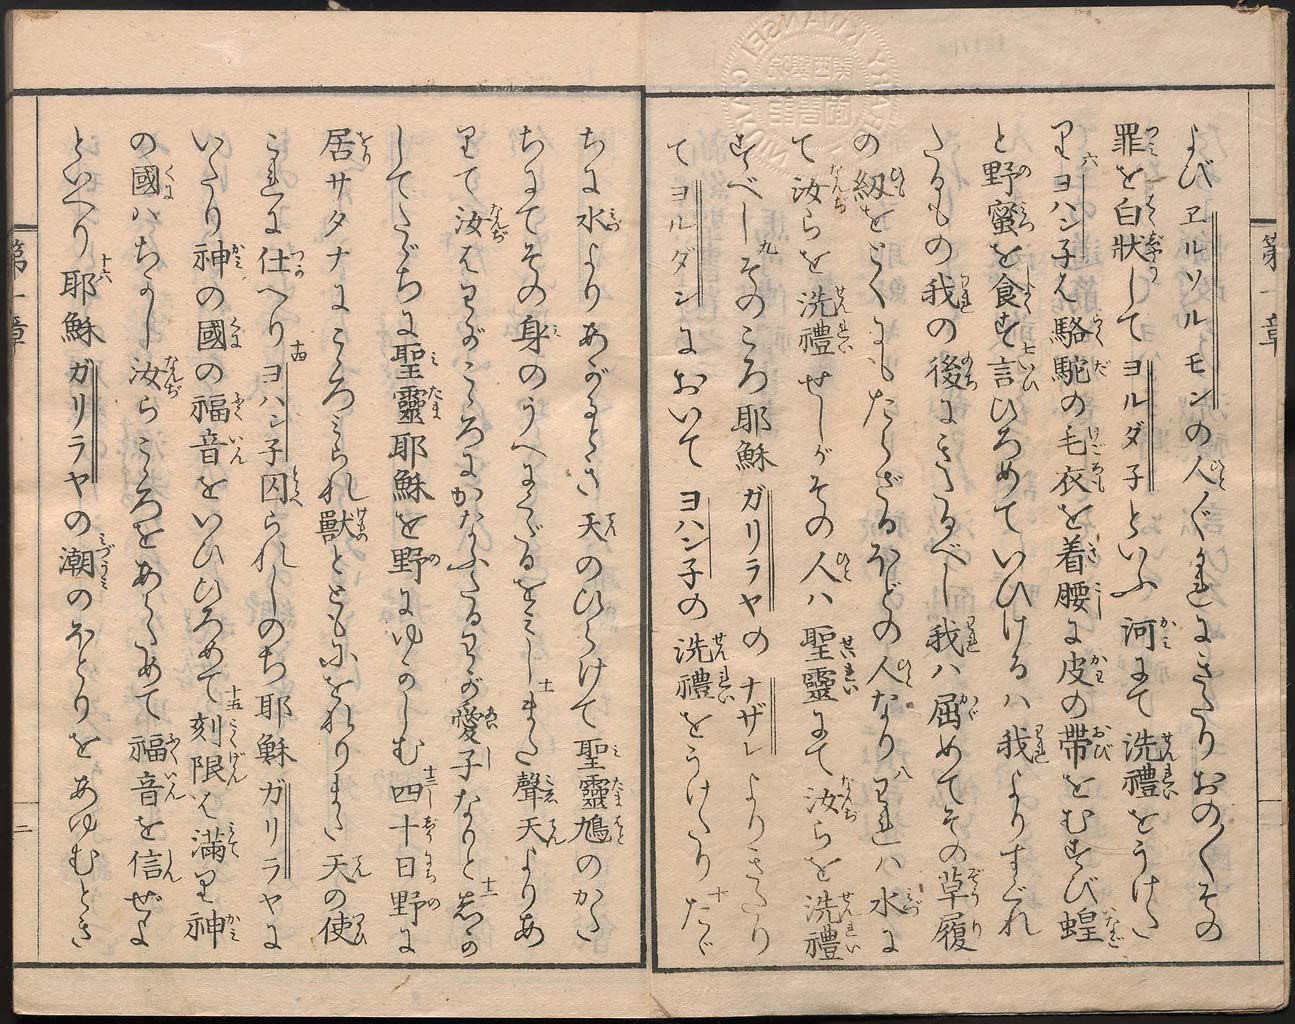 よびヱルソルモンの人〲かれにきたりおの〱その
罪を白状してヨルダ子といふ河にて洗禮をうけた
り六ヨハン子ハ駱駝の毛衣を着腰に皮の帯をむすび蝗
と野蜜を食す七言ひろめていひけるハ我よりすぐれ
たるもの我の後にきたるべし我ハ屈めてその草履
の紐をとくにもたらざるほどの人なり八われハ水に
て汝らを洗禮せしがその人ハ聖靈にて汝らを洗禮
すべし九そのころ耶穌ガリラヤのナザレよりきたり
てヨルダンにおいてヨハン子の洗禮をうけたり十たゞ
第一章
ちに水よりあがるとき天のひらけて聖靈鳩のかた
ちにてその身のうへにくだるをミし十一また聲天よりあ
りて汝ハわがこゝろにかなふたるわが愛子なりと十二しか
してたゞちに聖靈耶穌を野にゆかしむ十三四十日野に
居サタナにこゝろミられ獸とともにをれりまた天の使
これに仕へり十四ヨハン子囚られしのち耶穌ガリラヤに
いたり神の國の福音をいひひろめて十五刻限ハ滿り神
の國ハちかし汝らこゝろをあらためて福音を信ぜよ
といへり十六耶穌ガリラヤの潮のほとりをあゆむとき
第一章
二